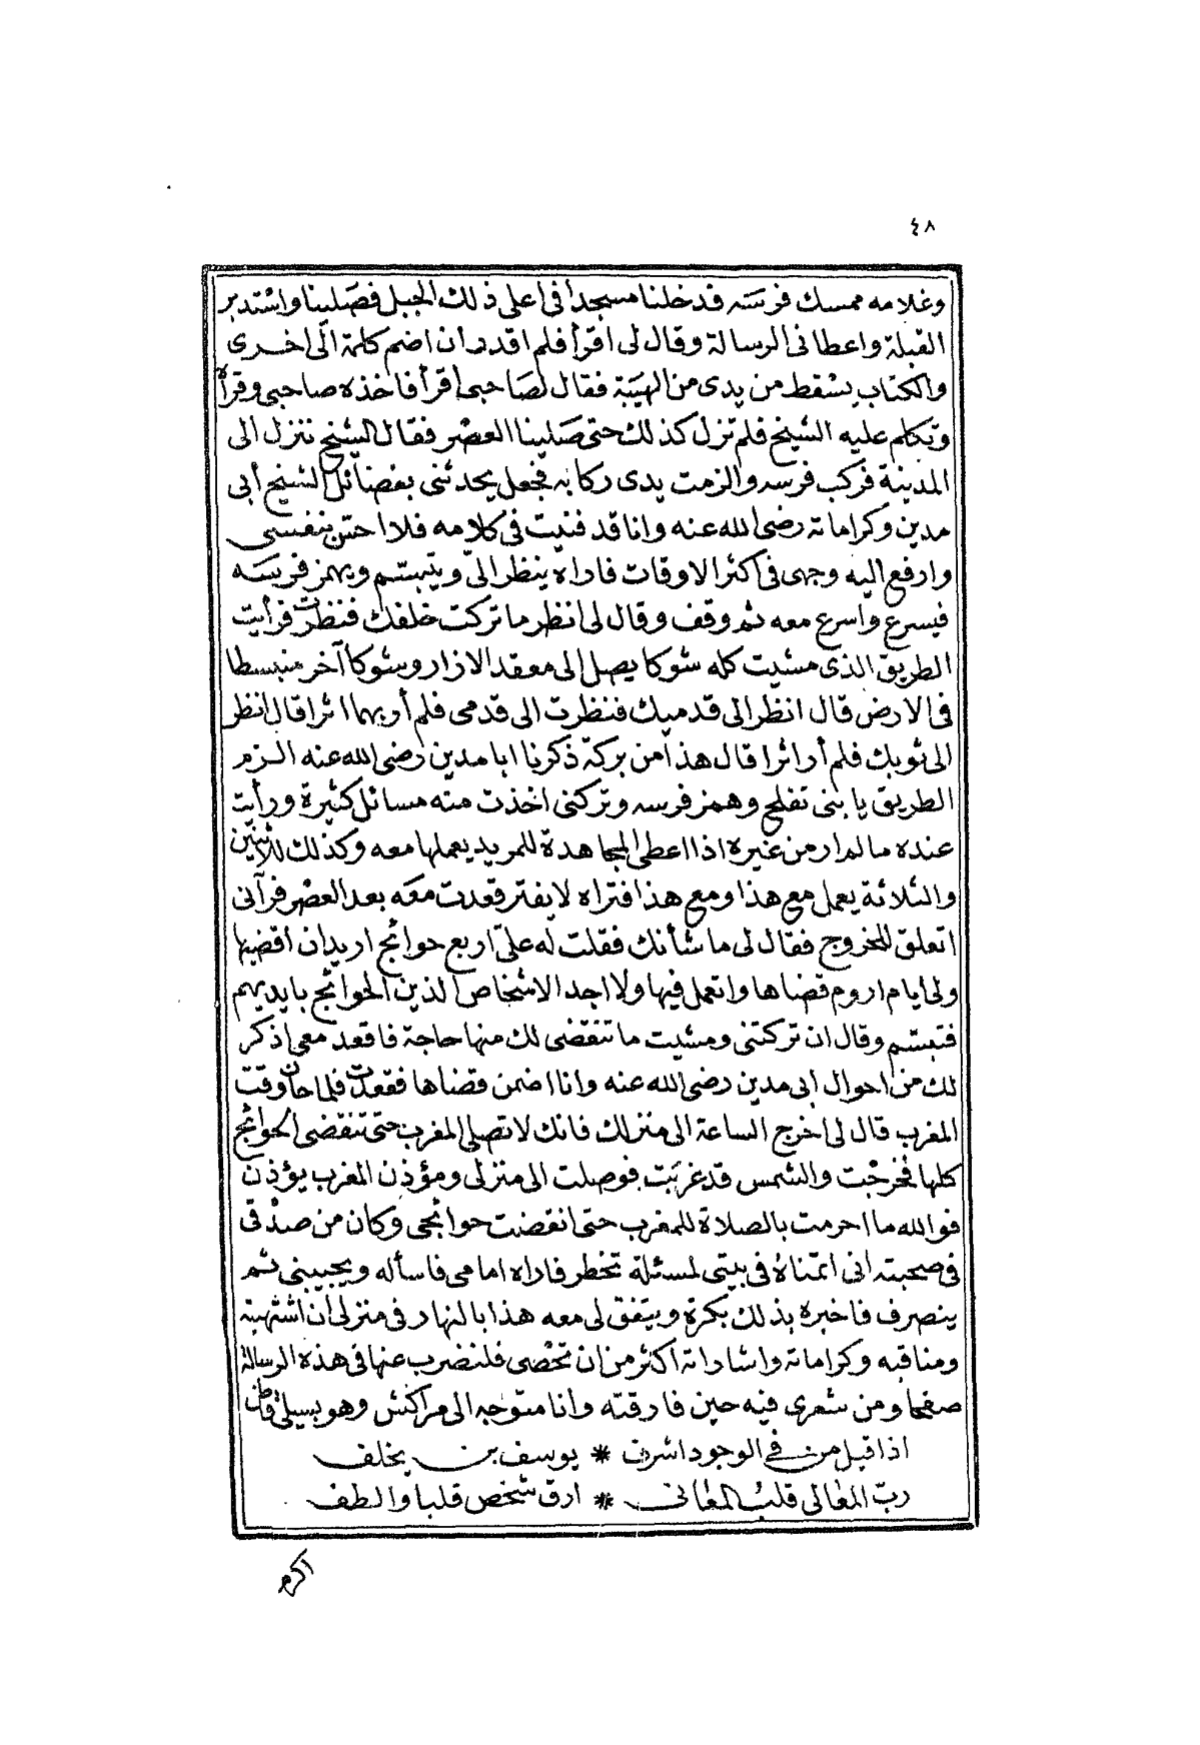 ٤٨
وغلامه ممسك فرسه فدخلنا مسجدا في اعلى ذلك الجبل فصلينا واستدبر
القبلة واعطانى الرسالة وقال لى اقرأ فلم اقدر ان اضم كلمة الى اخرى
والكتاب يسقط من يدى من الهيبة فقال لصاحبى اقرأ فاخذه صاحبى وقرأ
وتكلم عليه الشيخ فلم تزل كذلك حتى صلينا العصر فقال الشيخ ننزل الى
المدينة فركب فرسه والزمت يدى ركابه فجعل يحدثنى بفضائل الشيخ أبى
مدين وكراماته رضى الله عنه وانا قد فنيت فى كلامه فلا احس بنفسى
وارفع اليه وجهى فى اكثر الاوقات فاراه ينظر الىّ ويتبسم ويهمز فرسه
فيسرع واسرع معه ثم وقف وقال لى انظر ما تركت خلفك فنظرت فرأيت
الطريق الذى مشيت كله شوكا يصل الى معقد الازار وشوكا آخر منبسطا
فى الارض قال انظر الى قدميك فنظرت الى قدمى فلم أر بهما اثرا قال انظر
الى ثوبك فلم أر اثرا قال هذا من بركة ذكرنا ابا مدين رضى الله عنه الزم
الطريق يا بنى تفلح وهمز فرسه وتركنى اخذت منه مسائل كثيرة ورأيت
عنده ما لم ار من غيره اذا اعطى المجاهدة للمريد يعملها معه وكذلك للاثنين
والثلاثة يعمل مع هذا ومع هذا فتراه لا يفتر قعدت معه بعد العصر فرآنى
اتعلق للخروج فقال لى ما شأنك فقلت له علىّ اربع حوائج اريد ان اقضيها
ولى ايام اروم قضاها واتعمل فيها ولا اجد الاشخاص الذين الحوائج بايديهم
فتبسم وقال ان تركتنى ومشيت ما تنقضى لك منها حاجة فاقعد معى اذكر
لك من احوال ابى مدين رضى الله عنه وانا اضمن قضاها فقعدت فلما حان وقت
المغرب قال لى اخرج الساعة الى منزلك فانك لا تصلى المغرب حتى تنقضى الحوائج
كلها فخرجت والشمس قد غربت فوصلت الى منزلى ومؤذن المغرب يؤذن
فوالله ما احرمت بالصلاة للمغرب حتى انقضت حوائجى وكان من صدقى
فى صحبته انى اتمناه فى بيتى لمسئلة تخطر فاراه امامى فاسأله ويجيبنى ثم
ينصرف فاخبره بذلك بكرة ويتفق لى معه هذا بالنهار فى منزلى ان اشتهيته
ومناقبه وكراماته واشاراته اكثر من ان تحصى فلنضرب عنها فى هذه الرسالة
صفحا ومن شعرى فيه حين فارقته وانا متوجه الى مراكش وهو بسلى
اذا قيل من فى الوجود اشرف * يوسف بن يخلف
ربّ المعالى قلب المعانى * ارق شخص قلبا والطف
اكرم